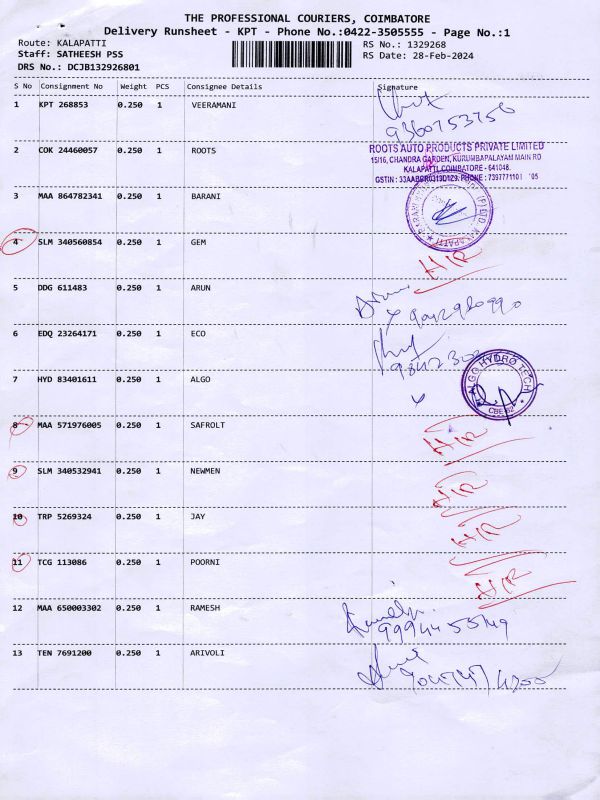 THE PROFESSIONAL COURIERS, COIMBATORE
Delivery Runsheet - KPT - Phone No.:0422-3505555 - Page No.:1
Route: KALAPATTI RS No.: 1329268
Staff: SATHEESH PSS RS Date: 28-Feb-2024
DRS No.: DCJB132926801
S No Consignment No Weight PCS Consignee Details Signature
1 KPT 268853 0.250 1 VEERAMANI
9360753756
2 COK 24460057 0.250 1 ROOTS
ROOTS AUTO PRODUCTS PRIVATE LIMITED
15/16, CHANDRA GARDEN, KURUMBAPALAYAM MAIN RD
KALAPATTI, COIMBATORE - 641048.
PHONE : 7397771101
3 MAA 864782341 0.250 1 BARANI
4 SLM 340560854 0.250 1 GEM HR
5 DDG 611483 0.250 1 ARUN Arun
6 EDQ 23264171 0.250 1 ECO
7 HYD 83401611 0.250 1 ALGO ALGO HYDRO TECH
8 MAA 571976005 0.250 1 SAFROLT HR
9 SLM 340532941 0.250 1 NEWMEN HR
10 TRP 5269324 0.250 1 JAY HR
11 TCG 113086 0.250 1 POORNI HR
12 MAA 650003302 0.250 1 RAMESH
13 TEN 7691200 0.250 1 ARIVOLI